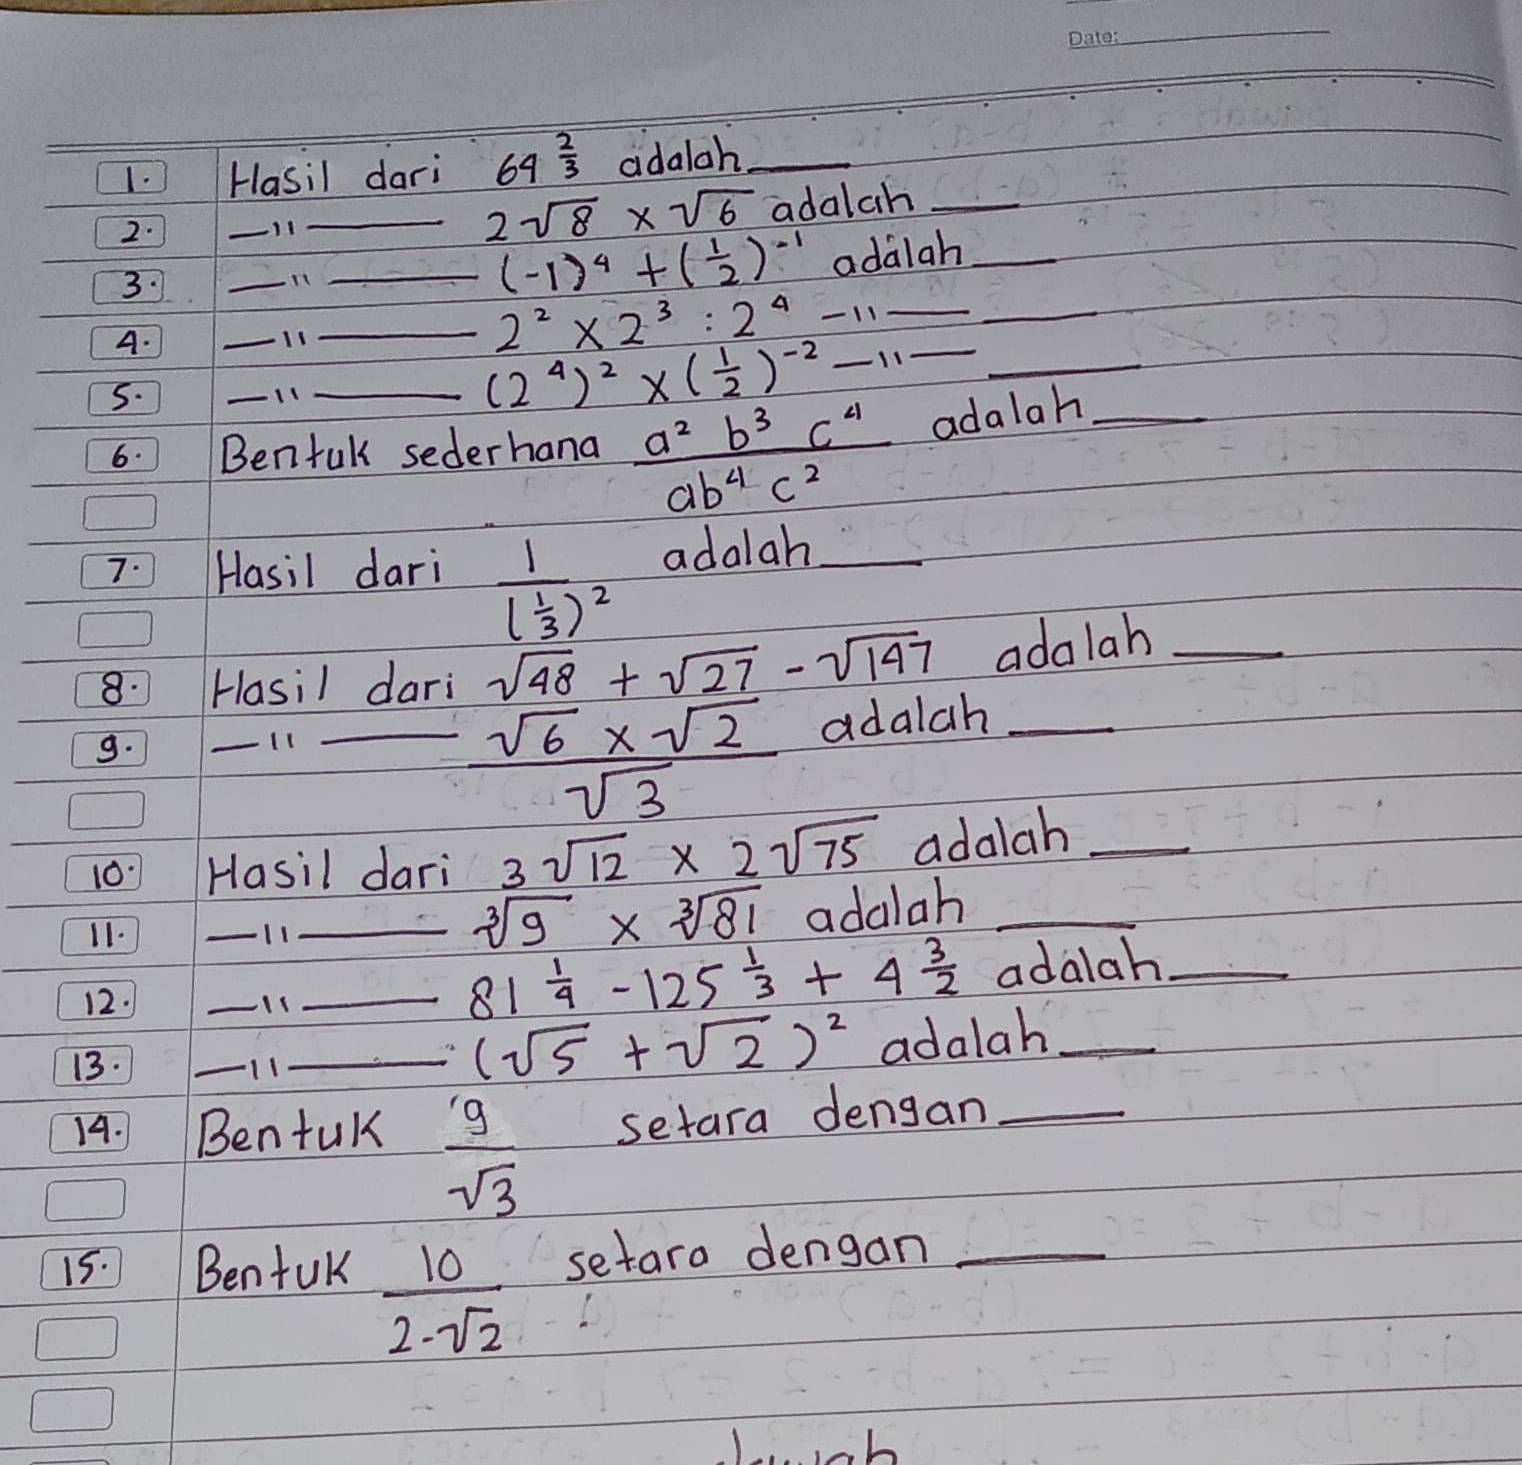 Date:
1. Hasil dari 64^(2/3) adalah ___
2. —"— 2√8 × √6 adalah ___
3. —"— (-1)⁴ + (1/2)⁻¹ adalah ___
4. —"— 2² × 2³ : 2⁴ —"— ___
5. —"— (2⁴)² × (1/2)⁻² —"— ___
6. Bentuk sederhana a² b³ c⁴ / ab⁴ c² adalah ___
7. Hasil dari 1 / (1/3)² adalah ___
8. Hasil dari √48 + √27 - √147 adalah ___
9. —"— √6 × √2 / √3 adalah ___
10. Hasil dari 3√12 × 2√75 adalah ___
11. —"— ³√9 × ³√81 adalah ___
12. —"— 81^(1/4) - 125^(1/3) + 4^(3/2) adalah ___
13. —"— (√5 + √2)² adalah ___
14. Bentuk 9 / √3 setara dengan ___
15. Bentuk 10 / 2-√2 setara dengan ___